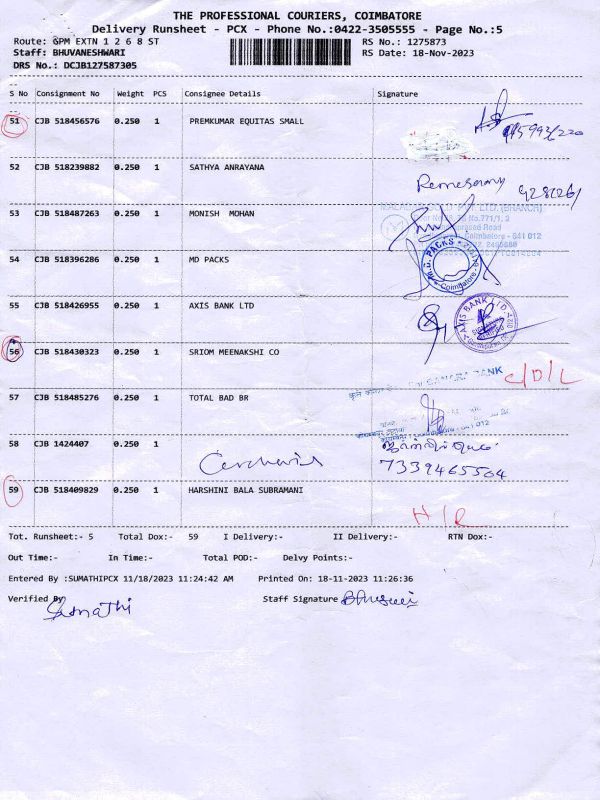 THE PROFESSIONAL COURIERS, COIMBATORE
Delivery Runsheet - PCX - Phone No.:0422-3505555 - Page No.:5
Route: GPM EXTN 1 2 6 8 ST RS No.: 1275873
Staff: BHUVANESHWARI RS Date: 18-Nov-2023
DRS No.: DCJB127587305
S No Consignment No Weight PCS Consignee Details Signature
51 CJB 518456576 0.250 1 PREMKUMAR EQUITAS SMALL
52 CJB 518239882 0.250 1 SATHYA ANRAYANA
53 CJB 518487263 0.250 1 MONISH MOHAN
Coimbatore - 641 012
54 CJB 518396286 0.250 1 MD PACKS M.D. PACKS Coimbatore
55 CJB 518426955 0.250 1 AXIS BANK LTD AXIS BANK LTD
56 CJB 518430323 0.250 1 SRIOM MEENAKSHI CO
BANK C/D/L
57 CJB 518485276 0.250 1 TOTAL BAD BR
641 012
58 CJB 1424407 0.250 1
7339465504
59 CJB 518409829 0.250 1 HARSHINI BALA SUBRAMANI
H/R
Tot. Runsheet:- 5 Total Dox:- 59 I Delivery:- II Delivery:- RTN Dox:-
Out Time:- In Time:- Total POD:- Delvy Points:-
Entered By :SUMATHIPCX 11/18/2023 11:24:42 AM Printed On: 18-11-2023 11:26:36
Verified By Sumathi Staff Signature